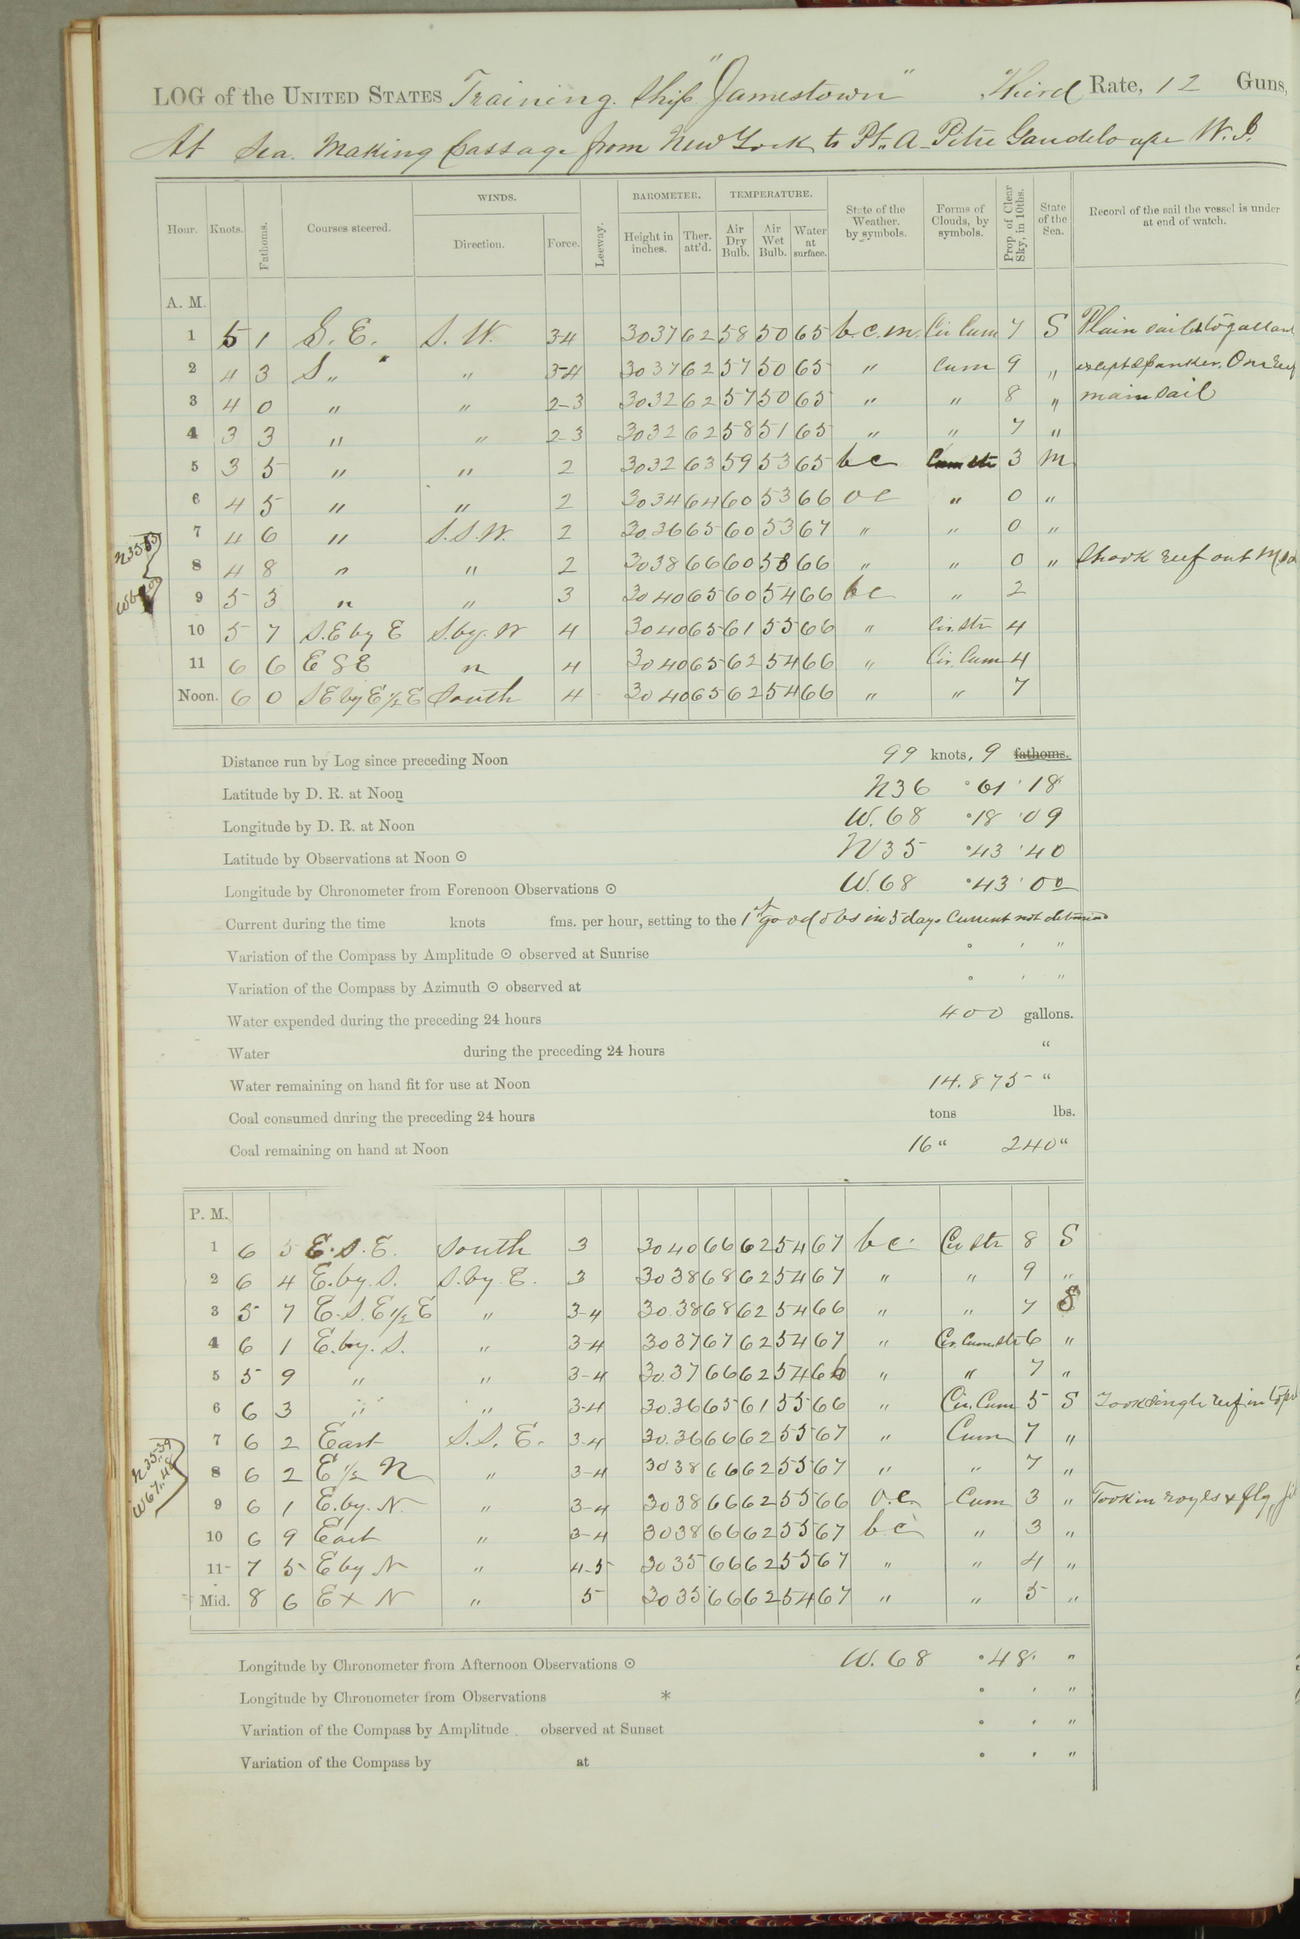 LOG of the UNITED STATES Training Ship "Jamestown" Third Rate, 12 Guns,
At Sea. Making passage from New York to Pt. A-Pitre Gaudeloupe W. I.
WINDS. BAROMETER. TEMPERATURE.
Hour. Knots. Fathoms. Courses steered. Direction. Force. Leeway. Height in inches. Ther. att'd. Air Dry Bulb. Air Wet Bulb. Water at surface. State of the Weather, by symbols. Forms of Clouds, by symbols. Prop. of Clear Sky, in 10ths. State of the Sea. Record of the sail the vessel is under at end of watch.
A. M.
1 5 1 S. E. S. W. 3-4 30 37 62 58 50 65 b.c.m. Cir Cum 7 S Plain sail to
2 4 3 S „ " „ 3-4 30 37 62 57 50 65 „ Cum 9 „ except spanker. One reef
3 4 0 „ „ 2-3 30 32 62 57 50 65 „ „ 8 „ main sail
4 3 3 „ „ 2-3 30 32 62 58 51 65 „ „ 7 „
5 3 5 „ „ 2 30 32 63 59 53 65 b c Cum str 3 M
6 4 5 „ „ 2 30 34 64 60 53 66 o c „ 0 „
7 4 6 „ S.S.W. 2 30.36 65 60 53 67 „ „ 0 „
8 4 8 „ „ 2 30 38 66 60 53 66 „ „ 0 „ Shook reef out
9 5 3 „ „ 3 30 40 65 60 54 66 b c „ 2
10 5 7 S.E by E S. by. W 4 30 40 65 61 55 66 „ Cir. Str 4
11 6 6 E S E „ 4 30 40 65 62 54 66 „ Cir. Cum 4
Noon. 6 0 S E by E ½ E South 4 30 40 65 62 54 66 „ „ 7
Distance run by Log since preceding Noon 99 knots, 9 fathoms.
Latitude by D. R. at Noon N 36 ° 01 ' 18
Longitude by D. R. at Noon W. 68 ° 18 ' 09
Latitude by Observations at Noon ⊙ N 35 ° 43 ' 40
Longitude by Chronometer from Forenoon Observations ⊙ W. 68 ° 43 ' 00
Current during the time knots fms. per hour, setting to the 1st good obs in 5 days Current not determined
Variation of the Compass by Amplitude ⊙ observed at Sunrise ° ' "
Variation of the Compass by Azimuth ⊙ observed at ° ' "
Water expended during the preceding 24 hours 400 gallons.
Water during the preceding 24 hours "
Water remaining on hand fit for use at Noon 14.875 "
Coal consumed during the preceding 24 hours tons lbs.
Coal remaining on hand at Noon 16 " 240 "
P. M.
1 6 5 E. S. E. South 3 30 40 66 62 54 67 b c. Cir Str 8 S
2 6 4 E. by. S. S. by. E. 3 30 38 68 62 54 67 „ „ 9 „
3 5 7 E. S. E ½ E „ 3-4 30.38 68 62 54 66 „ „ 7 S
4 6 1 E. by. S. „ 3-4 30 37 67 62 54 67 „ Cir. Cum. Str 6 „
5 5 9 „ „ 3-4 30.37 66 62 54 66 „ „ 7 „
6 6 3 „ „ 3-4 30.36 65 61 55 66 „ Cir. Cum 5 S Took single reef in
7 6 2 East S. S. E. 3-4 30.36 66 62 55 67 „ Cum 7 „
8 6 2 E ½ N „ 3-4 30 38 66 62 55 67 „ „ 7 „
9 6 1 E. by. N „ 3-4 30 38 66 62 55 66 o. c. Cum 3 „ Took in royls & flg. jib
10 6 9 East „ 3-4 30 38 66 62 55 67 b. c „ 3 „
11 7 5 E by N „ 4-5 30 35 66 62 55 67 „ „ 4 „
Mid. 8 6 E x N „ 5 30 35 66 62 54 67 „ „ 5 „
N 35.39
W 67.48
Longitude by Chronometer from Afternoon Observations ⊙ W. 68 ° 48 ' "
Longitude by Chronometer from Observations * ° ' "
Variation of the Compass by Amplitude observed at Sunset ° ' "
Variation of the Compass by at ° ' "